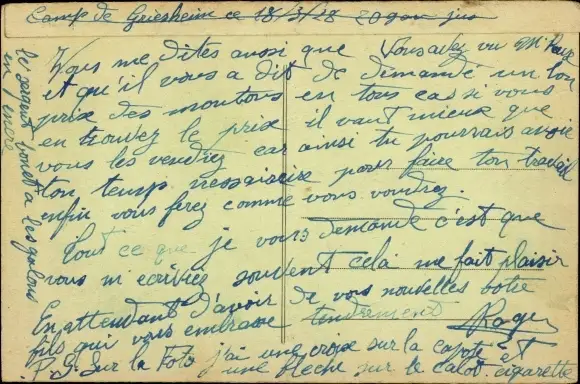 Camp de Griesheim ce 18/3/28
Vous me dites aussi que Vous avez vu Mr
et qu'il vous a dit de demandé un bon
prix des moutons en tous cas si vous
en trouvez le prix il vaut mieux que
vous les vendiez car ainsi tu pourrais avoir
ton temp nessaisaire pour faire ton travail
enfin vous ferez comme vous voudrez.
Tout ce que je vous demande c'est que
vous m'ecriviez souvent cela me fait plaisir
En attendant d'avoir de vos nouvelles votre
fils qui vous embrasse tendrement Roger
P.S. Sur la Foto j'ai une croix sur la capote et
une fleche sur le calot cigarette
le sergent a les galons
en